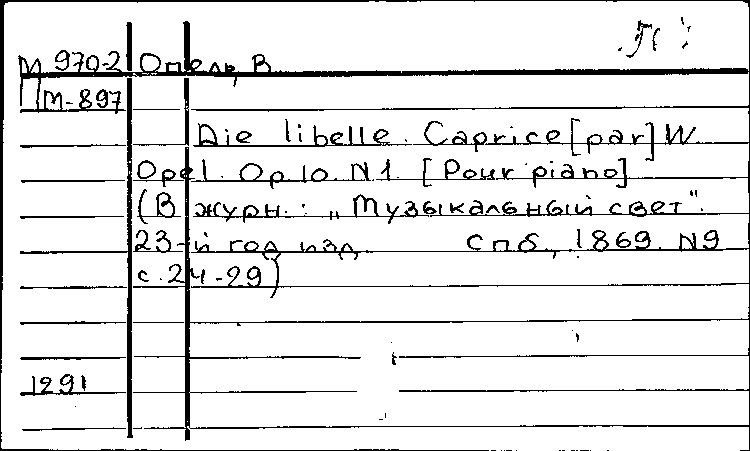 М 970-2 Опель, В.
М-897
Die libelle. Caprice [par] W.
Opel. Op. 10. N 1. [Pour piano]
(В журн.: „Музыкальный свет".
23-й год изд. Спб., 1869. N9
с. 24-29)
1291